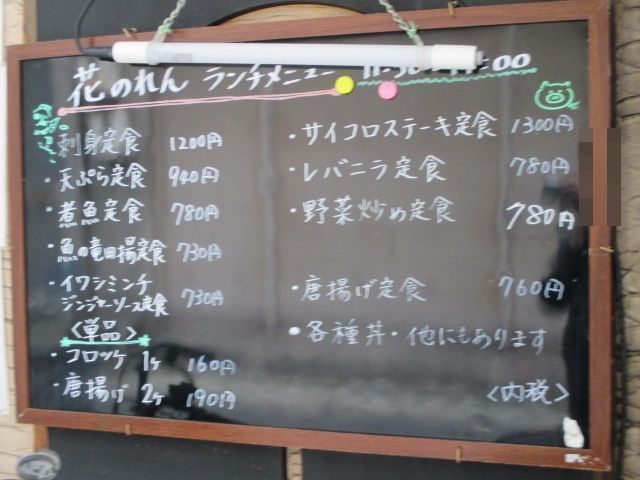 花のれん ランチメニュー
刺身定食 1200円
・天ぷら定食 940円
・煮魚定食 780円
・魚の竜田揚定食 730円
・イワシミンチ
ジンジャーソース定食 730円
〈単品〉
・コロッケ 1ヶ 160円
・唐揚げ 2ヶ 190円
・サイコロステーキ定食 1300円
・レバニラ定食 780円
・野菜炒め定食 780円
・唐揚げ定食 760円
・各種丼・他にもあります
〈内税〉